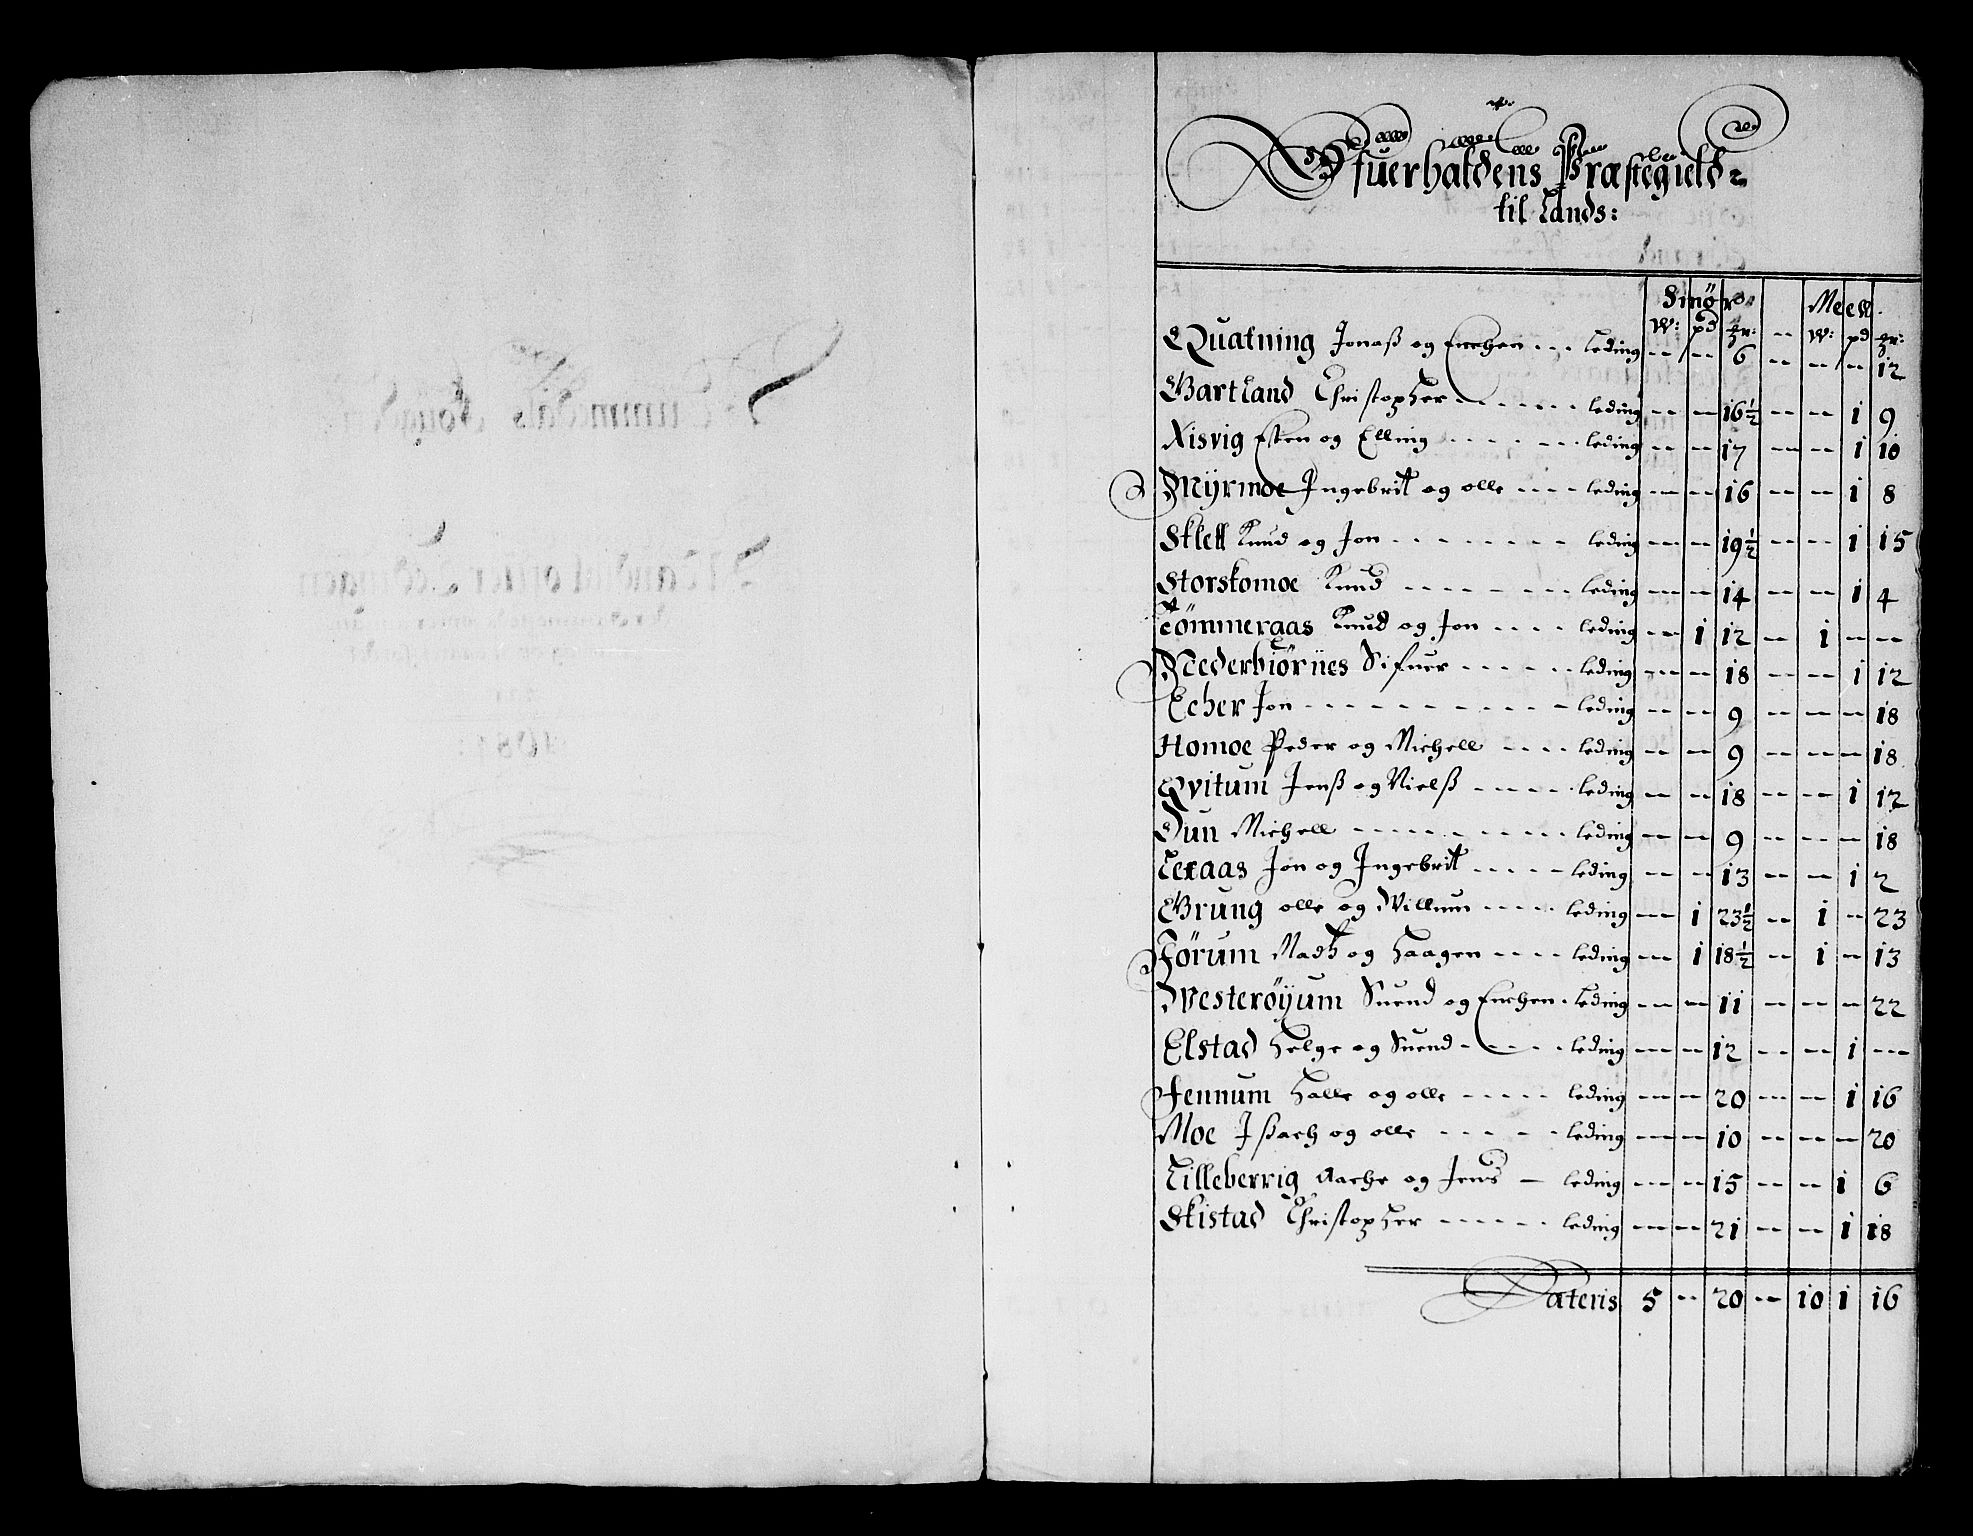 Ofuerhaldens Præstegield
til Lands:
Smör Meell
W: pd mr: -- W: pd mr:
Quatning Jonaß og Enchen --- leding -- -- 6 -- -- -- 12
Bartland Christopher ------ leding -- -- 16½ -- -- 1 9
Nisvig Esten og Elling ------ leding -- -- 17 -- -- 1 10
Myrmoe Ingebrit og olle ---- leding -- -- 16 -- -- 1 8
Sklett Knud og Jon -------- leding -- -- 19½ -- -- 1 15
Storskomoe Knud ------- leding -- -- 14 -- -- 1 4
Tömmeraas Knud og Jon ---- leding -- 1 12 -- 1 -- --
Nederbiørnes Sifuer ------ leding -- -- 18 -- -- 1 12
Echer Jon ----------- leding -- -- 9 -- -- -- 18
Homoe Peder og Michell ---- leding -- -- 9 -- -- -- 18
Qvitum Jenß og Nielß ----- leding -- -- 18 -- -- 1 12
Dun Michell ---------- leding -- -- 9 -- -- -- 18
Leraas Jon og Ingebrit ----- leding -- -- 13 -- -- 1 2
Grung olle og Willum ---- leding -- 1 23½ -- 1 -- 23
Førum Madß og Haagen ---- leding -- 1 18½ -- 1 -- 13
Westerøyum Suend og Enchen . leding -- -- 11 -- -- -- 22
Elstad Helge og Suend ----- leding -- -- 12 -- -- 1 --
Fennum Halle og olle ----- leding -- -- 20 -- -- 1 16
Moe Ißach og olle ----- leding -- -- 10 -- -- -- 20
Lilleberrig Aache og Jens -- leding -- -- 15 -- -- 1 6
Skistad Christopher ------ leding -- -- 21 -- -- 1 18
Lateris 5 -- 20 -- 10 1 16